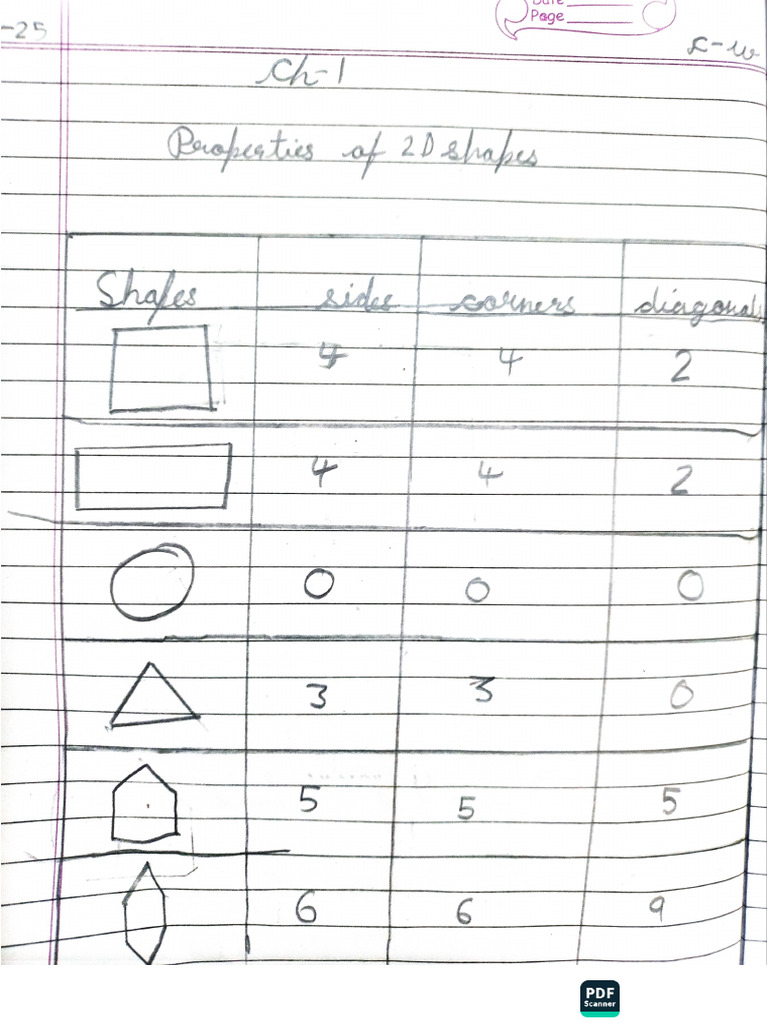 Date
Page
-25
c-w
Ch-1
Properties of 2D shapes
Shapes sides corners diagonals
4 4 2
4 4 2
0 0 0
3 3 0
5 5 5
6 6 9
PDF
Scanner